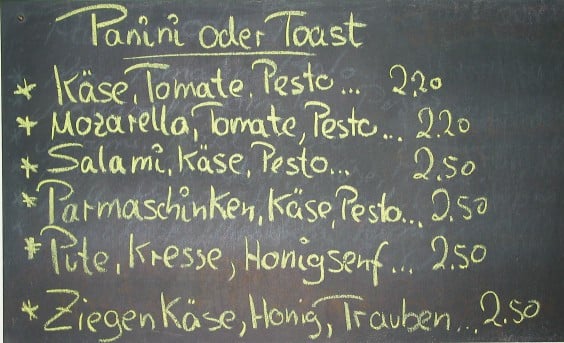 Panini oder Toast
* Käse, Tomate, Pesto... 2.20
* Mozarella, Tomate, Pesto... 2.20
* Salami, Käse, Pesto... 2.50
* Parmaschinken, Käse, Pesto... 2.50
* Pute, Kresse, Honigsenf... 2.50
* ZiegenKäse, Honig, Trauben... 2.50